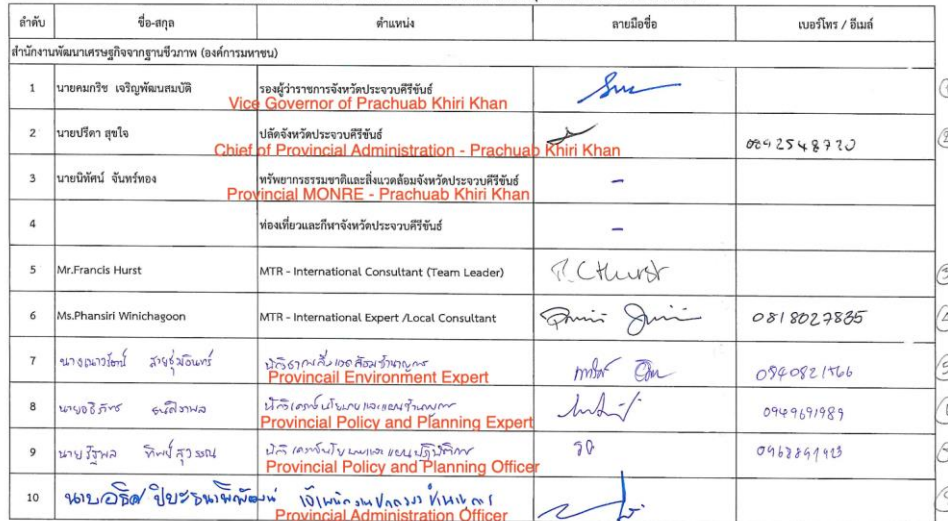 ลำดับ ชื่อ-สกุล ตำแหน่ง ลายมือชื่อ เบอร์โทร / อีเมล์
สำนักงานพัฒนาเศรษฐกิจจากฐานชีวภาพ (องค์การมหาชน)
1 นายคมกริช เจริญพัฒนสมบัติ รองผู้ว่าราชการจังหวัดประจวบคีรีขันธ์
Vice Governor of Prachuab Khiri Khan
2 นายปรีดา สุขใจ ปลัดจังหวัดประจวบคีรีขันธ์ 0892548720
Chief of Provincial Administration - Prachuab Khiri Khan
3 นายนิทัศน์ จันทร์ทอง ทรัพยากรธรรมชาติและสิ่งแวดล้อมจังหวัดประจวบคีรีขันธ์ -
Provincial MONRE - Prachuab Khiri Khan
4 ท่องเที่ยวและกีฬาจังหวัดประจวบคีรีขันธ์ -
5 Mr.Francis Hurst MTR - International Consultant (Team Leader)
6 Ms.Phansiri Winichagoon MTR - International Expert /Local Consultant 0818027835
7 นักวิชาการสิ่งแวดล้อมชำนาญการ 0840821566
Provincail Environment Expert
8 นักวิเคราะห์นโยบายและแผนชำนาญการ 0949691989
Provincial Policy and Planning Expert
9 นายรัฐพล ทิพย์สุวรรณ นักวิเคราะห์นโยบายและแผนปฏิบัติการ
Provincial Policy and Planning Officer
10 เจ้าพนักงานปกครองชำนาญการ
Provincial Administration Officer